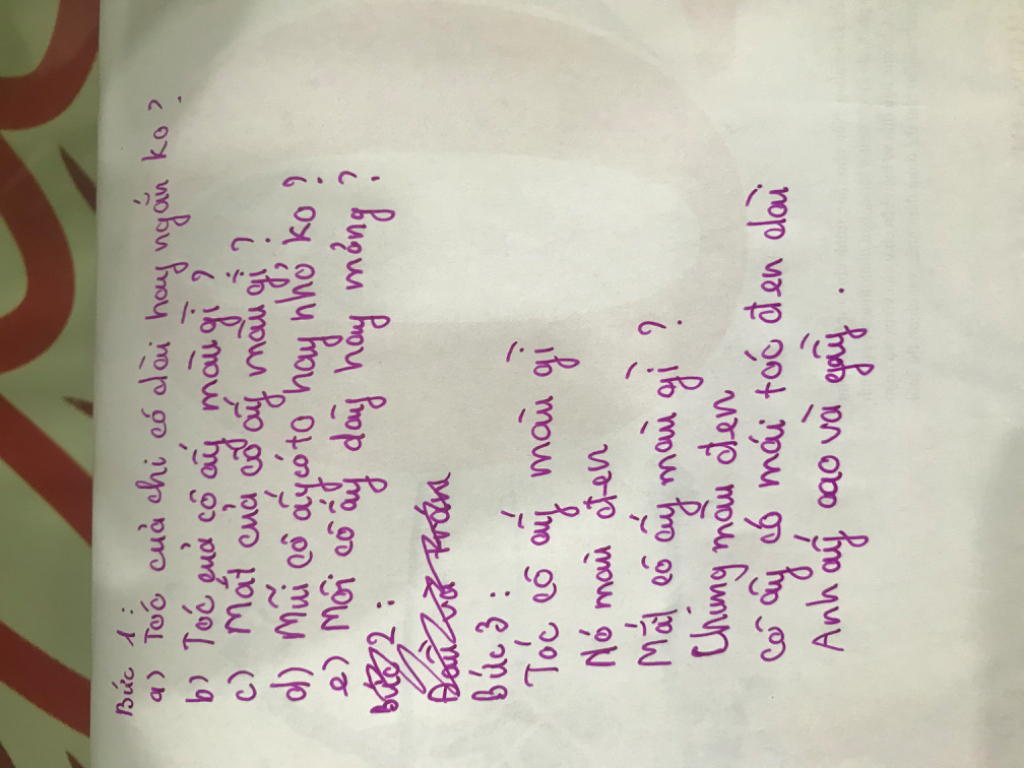 Bức 1:
a) Tóc của chi có dài hay ngắn ko?
b) Tóc của cô ấy màu gì?
c) Mắt của cô ấy màu gì?
d) Mũi cô ấy có to hay nhỏ ko?
e) Môi cô ấy dày hay mỏng?
Bức 2:
Bức 3:
Tóc cô ấy màu gì
Nó màu đen
Mắt cô ấy màu gì?
Chúng màu đen
cô ấy có mái tóc đen dài
Anh ấy cao và gầy.